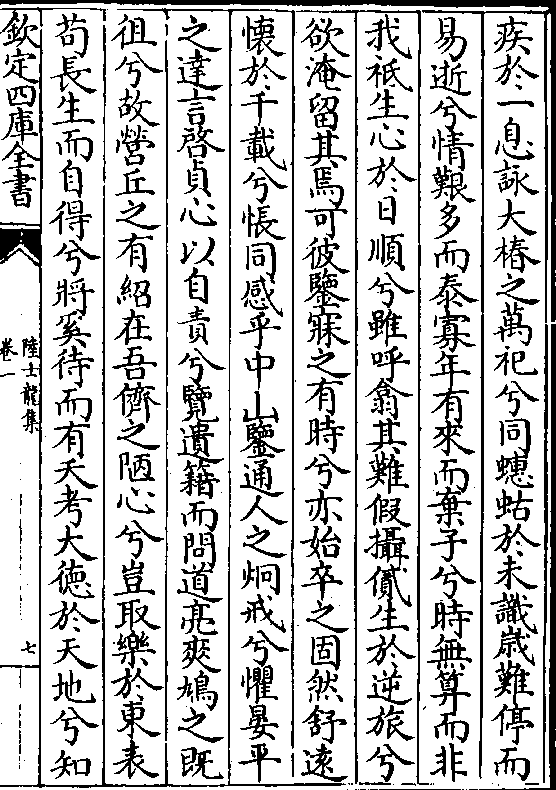 疾於一息詠大椿之萬祀兮同蟪蛄於未識歳難停而
易逝兮情艱多而泰寡年有來而棄予兮時無算而非
我祇生心於日順兮雖呼翕其難假攝儥生於逆旅兮
欲淹留其焉可彼鑒寐之有時兮亦始卒之固然舒遠
懷於千載兮悵同感乎中山鑒通人之炯戒兮懼晏平
之達言啓貞心以自責兮覽遺籍而問道亮爽鳩之既
徂兮故營丘之有紹在吾儕之陋心兮豈取樂於東表
苟長生而自得兮將奚待而有夭考大徳於天地兮知
欽定四庫全書
陸士龍集
卷一
七